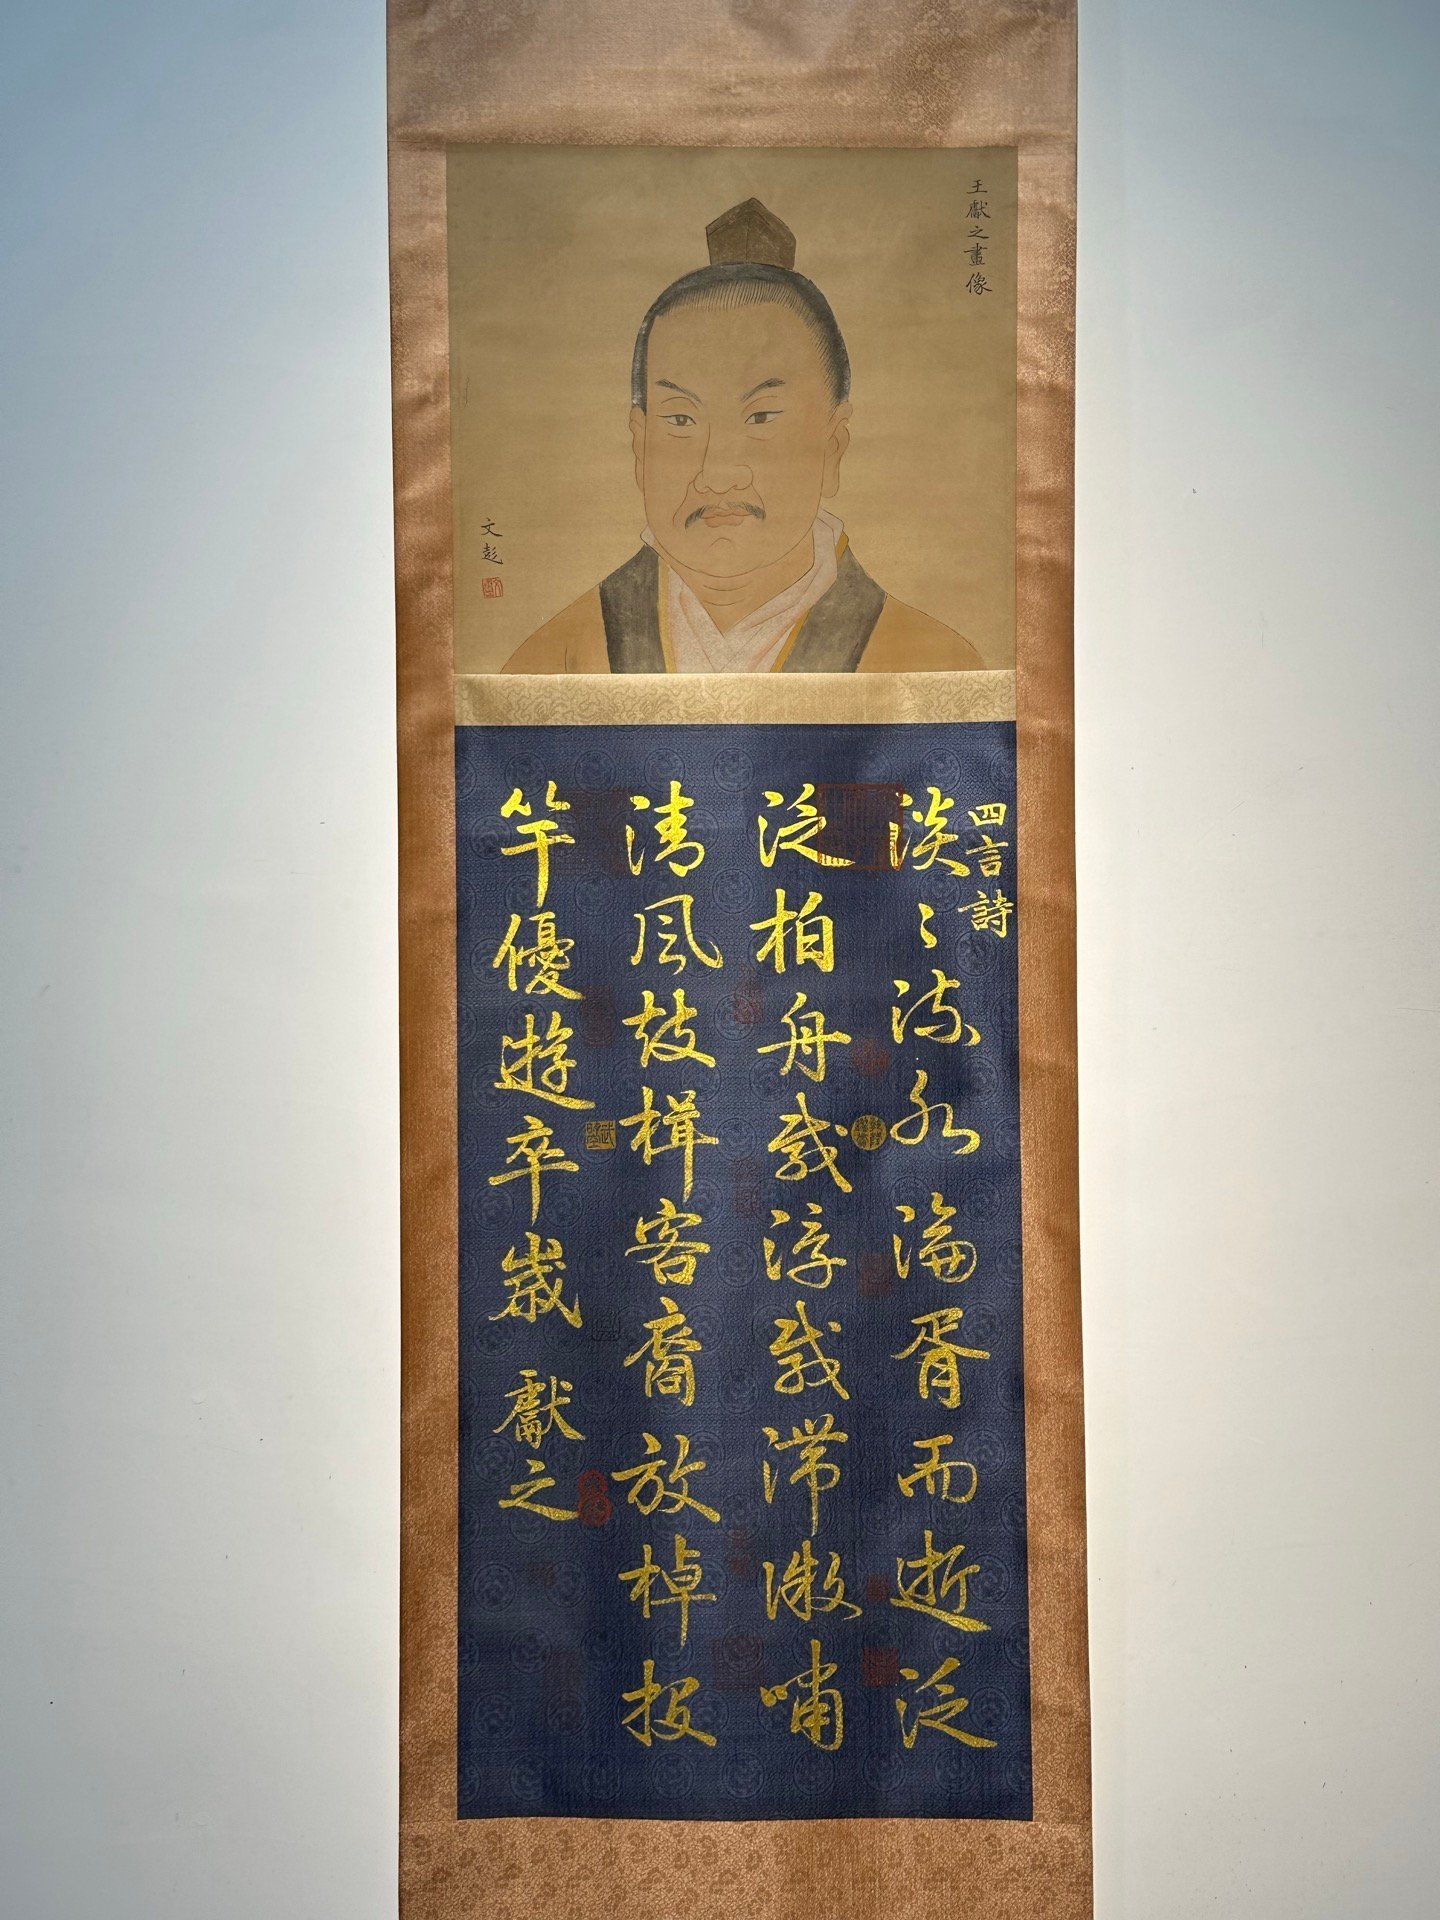 王獻之畫像
文彭
四言詩
淡〻流水淪胥而逝泛
泛柏舟載浮載滯微嘯
清風鼓楫容裔放棹投
竿優遊卒歲 獻之